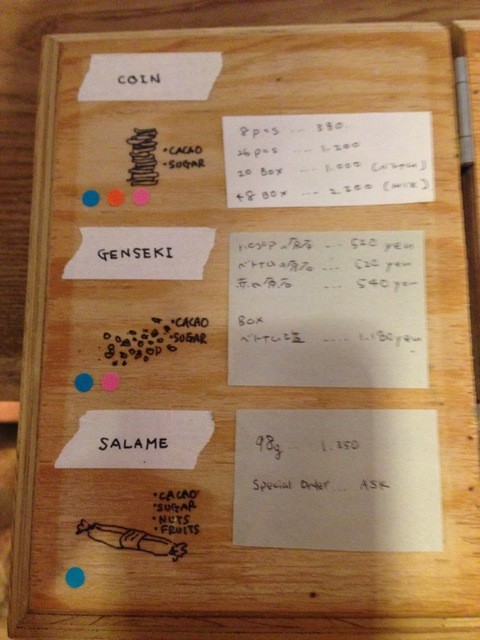 COIN
• CACAO
• SUGAR
8 pcs ... 390.
26 pcs ... 1.200
20 BOX ... 1.000
48 BOX ... 2.200
GENSEKI
• CACAO
• SUGAR
の原石 ... 520 yen
ベトナムの原石 ... 520 yen
の原石 ... 540 yen
BOX
ベトナム ..... yen
SALAME
• CACAO
• SUGAR
• NUTS
• FRUITS
98g ... 1.350
Special Order ... ASK